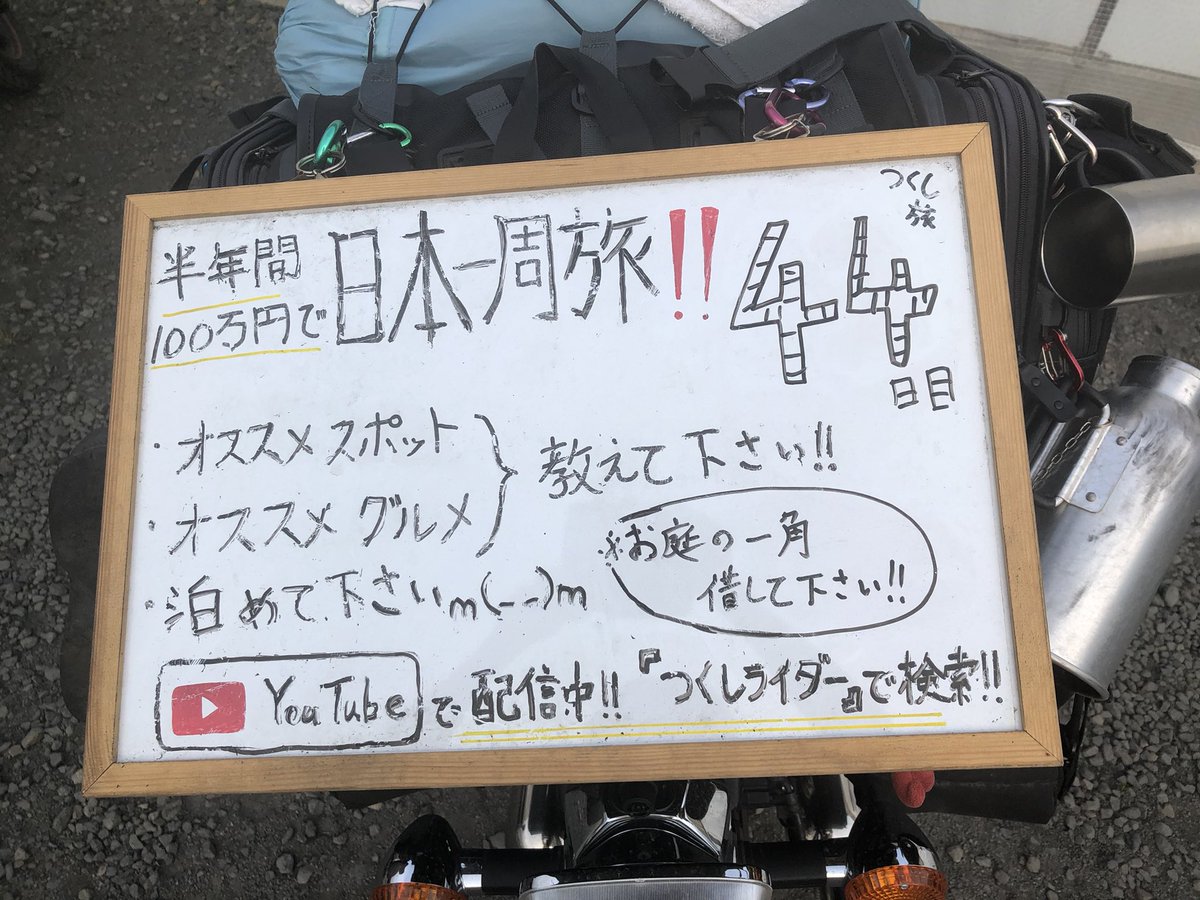 半年間
100万円で
日本一周旅!!
44
日目
つくし
旅
・オススメスポット
・オススメグルメ
教えて下さい!!
・泊めて下さいm(--)m
※お庭の一角
借して下さい!!
YouTubeで配信中!!『つくしライダー』で検索!!